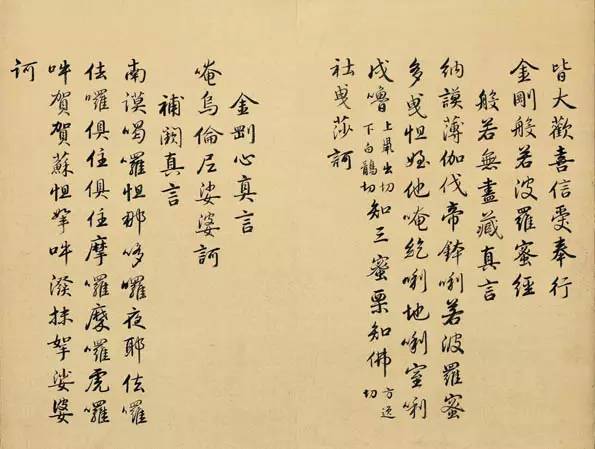 皆大歡喜信受奉行
金剛般若波羅蜜經
般若無盡藏真言
納謨薄伽伐帝鉢唎若波羅蜜
多曳怛姪他唵紇唎地唎室唎
戍嚕上出切下白鶻切知三蜜栗知佛方逸切
社曳莎訶
金剛心真言
唵烏倫尼娑婆訶
補闕真言
南謨喝囉怛那哆囉夜耶佉囉
佉囉俱住俱住摩囉摩囉虎囉
吽賀賀蘇怛拏吽潑抹拏娑婆
訶